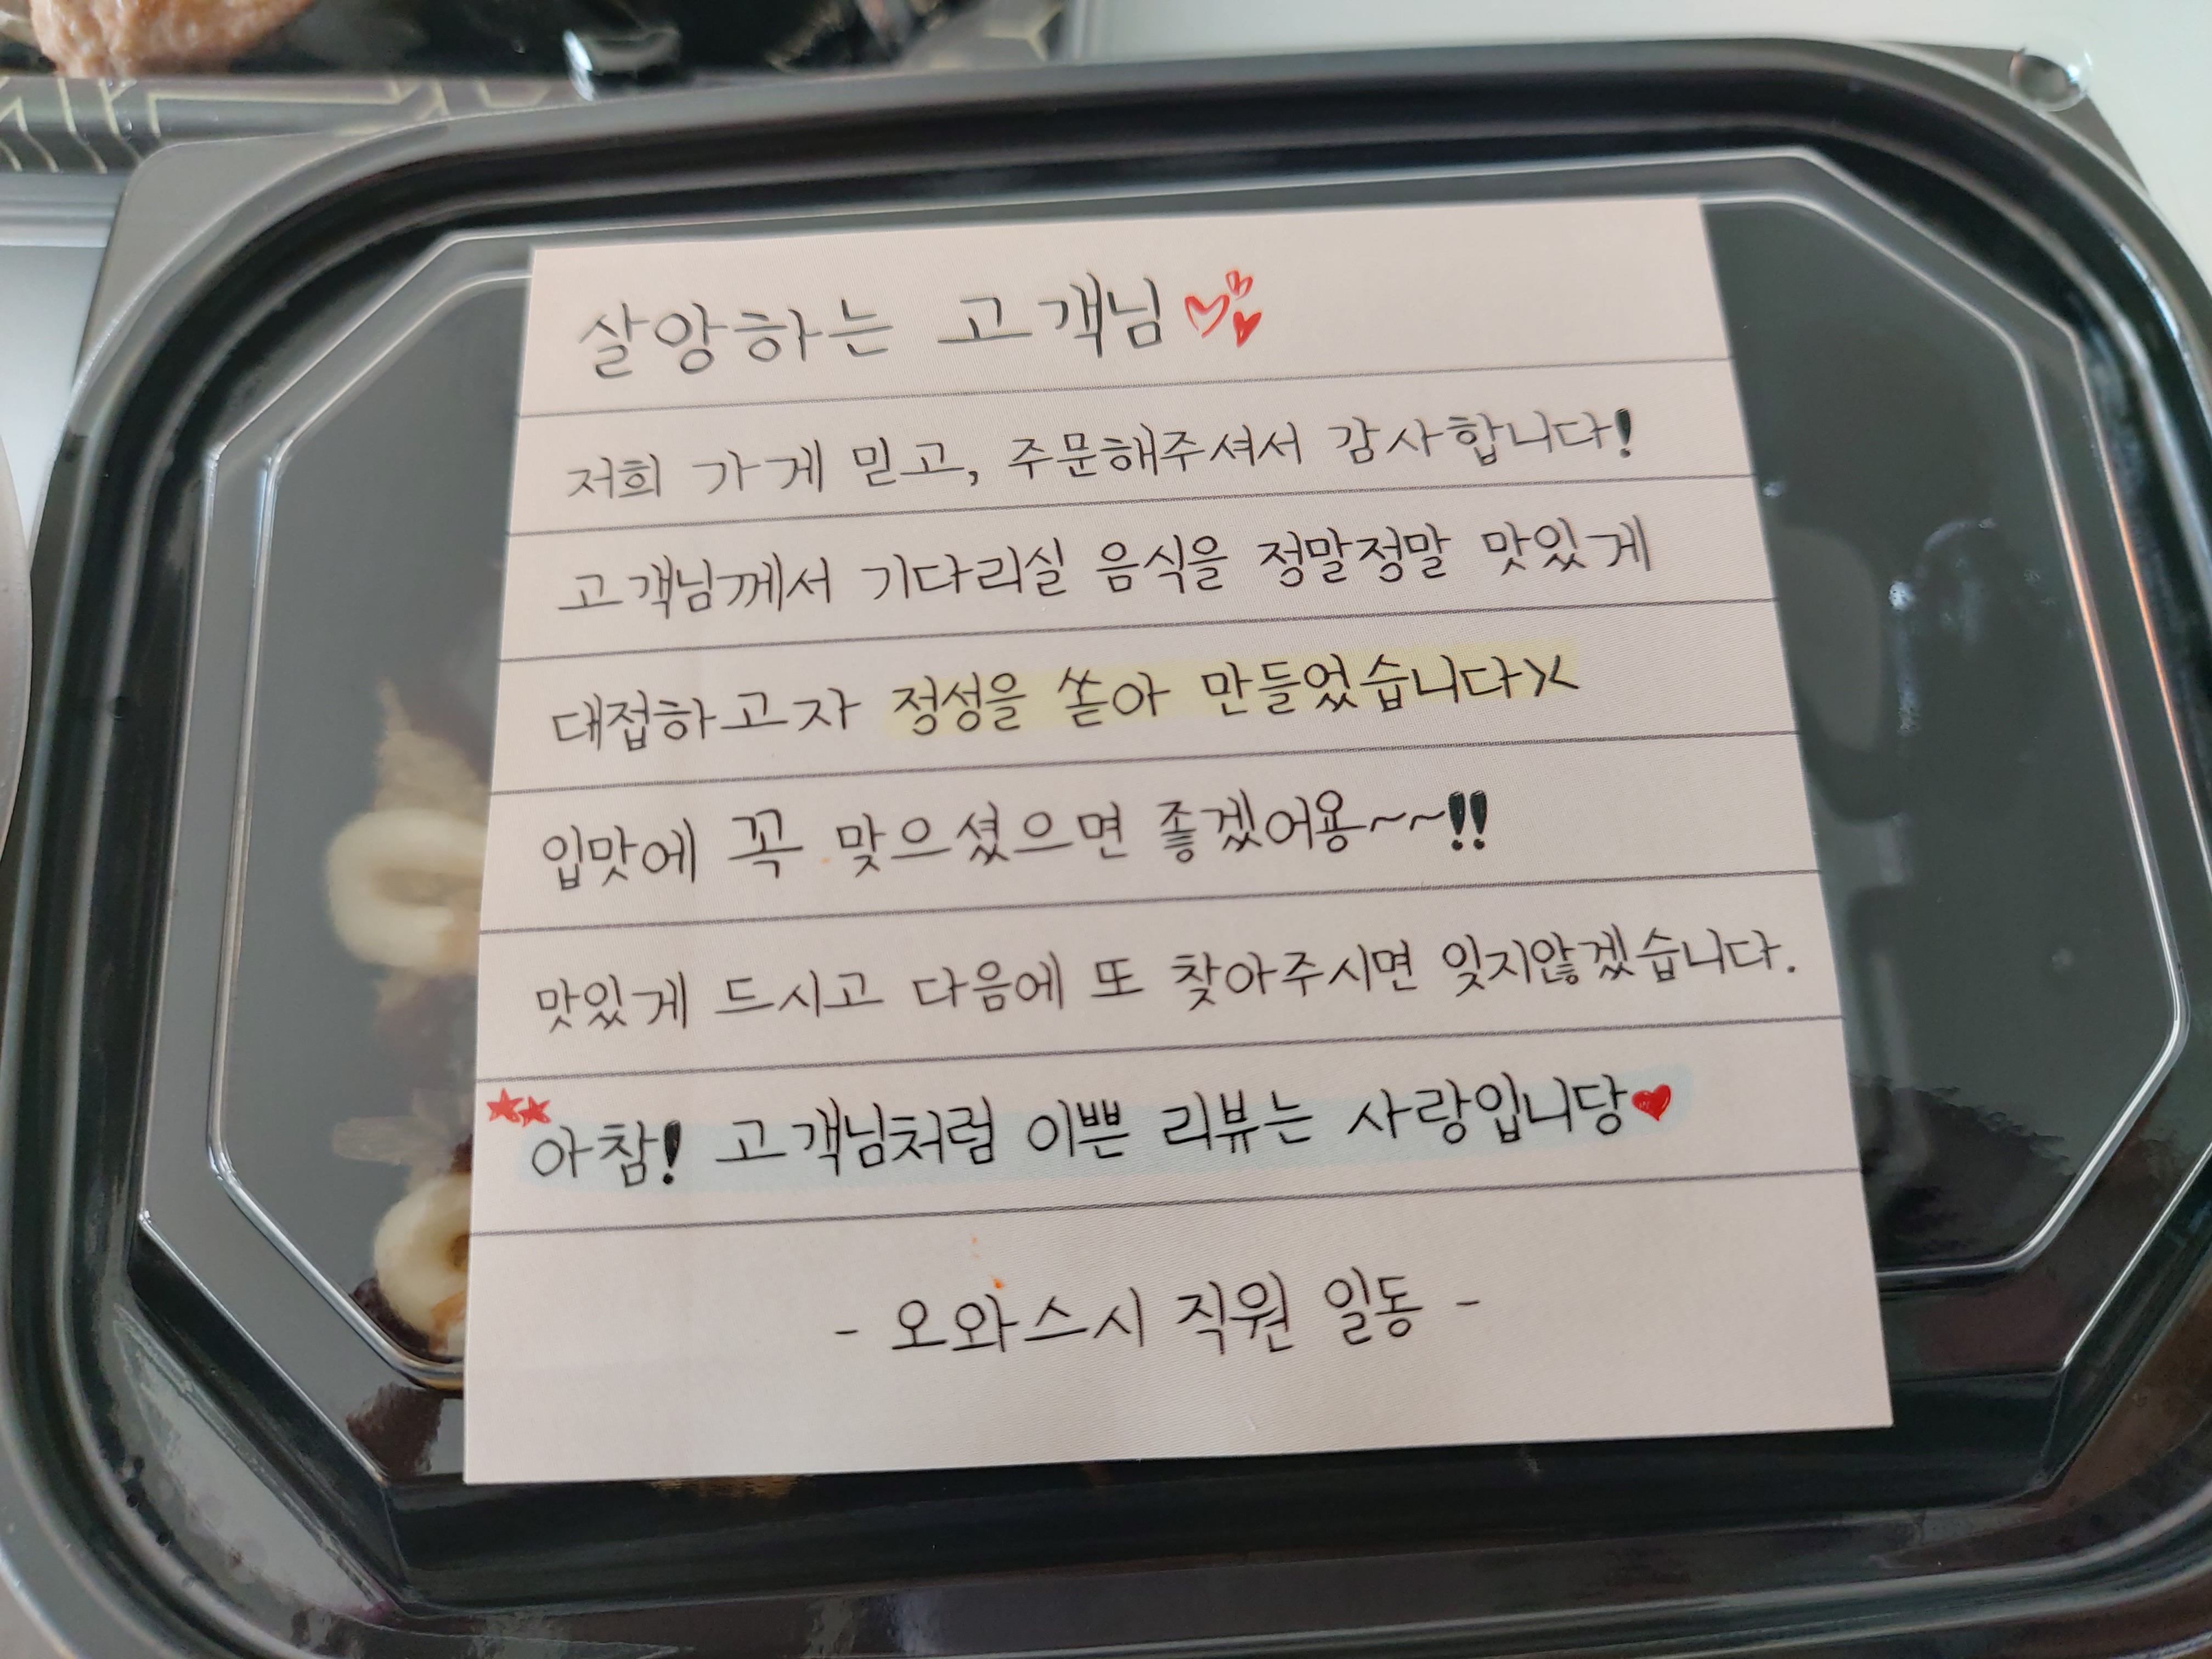 살앙하는 고객님
저희 가게 믿고, 주문해주셔서 감사합니다!
고객님께서 기다리실 음식을 정말정말 맛있게
대접하고자 정성을 쏟아 만들었습니다><
입맛에 꼭 맞으셨으면 좋겠어용~~!!
맛있게 드시고 다음에 또 찾아주시면 잊지않겠습니다.
아참! 고객님처럼 이쁜 리뷰는 사랑입니당♥
- 오와스시 직원 일동 -